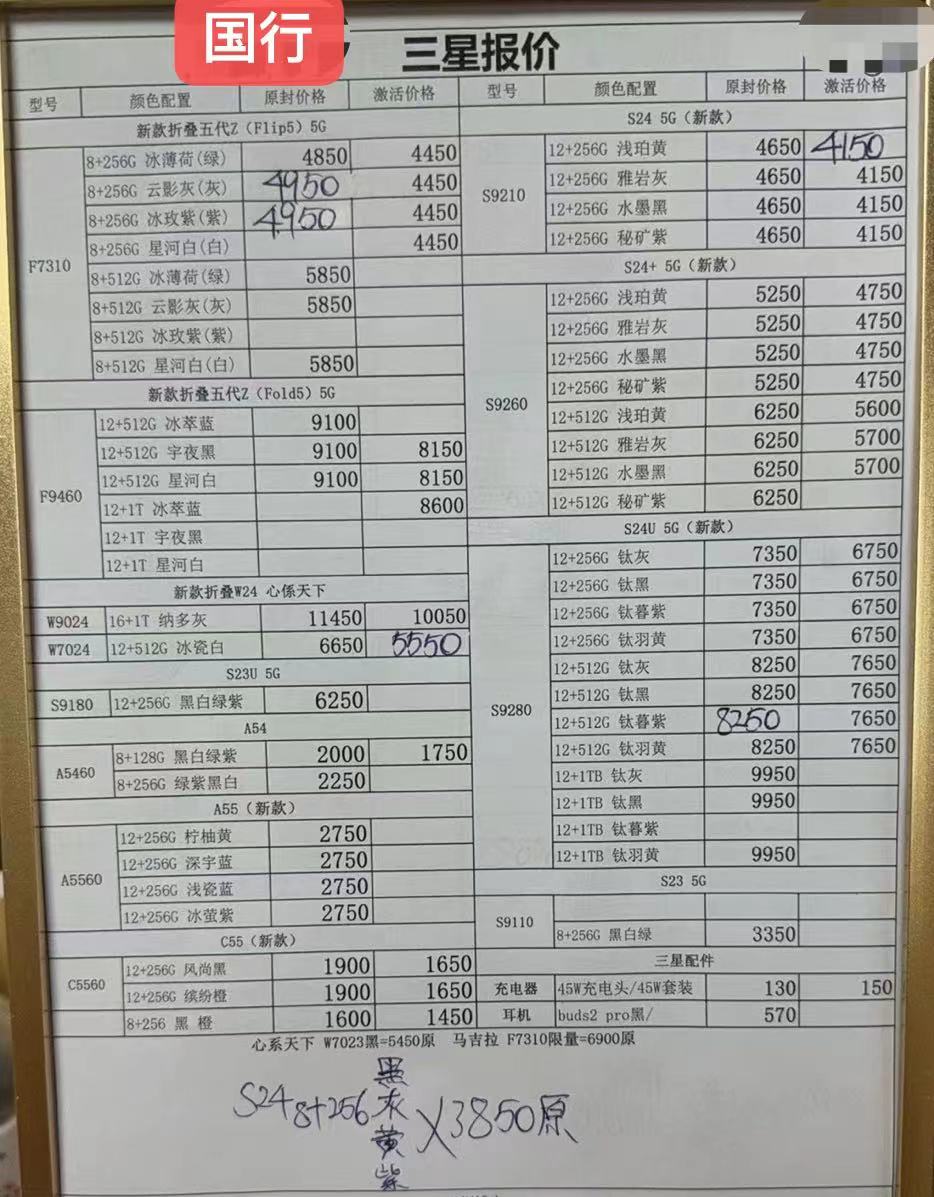 国行
三星报价
型号 颜色配置 原封价格 激活价格
新款折叠五代Z（Flip5）5G
F7310
8+256G 冰薄荷(绿) 4850 4450
8+256G 云影灰(灰) 4950 4450
8+256G 冰玫紫(紫) 4950 4450
8+256G 星河白(白) 4450
8+512G 冰薄荷(绿) 5850
8+512G 云影灰(灰) 5850
8+512G 冰玫紫(紫)
8+512G 星河白(白) 5850
新款折叠五代Z（Fold5）5G
F9460
12+512G 冰萃蓝 9100
12+512G 宇夜黑 9100 8150
12+512G 星河白 9100 8150
12+1T 冰萃蓝 8600
12+1T 宇夜黑
12+1T 星河白
新款折叠W24 心係天下
W9024 16+1T 纳多灰 11450 10050
W7024 12+512G 冰瓷白 6650 5550
S23U 5G
S9180 12+256G 黑白绿紫 6250
A54
A5460
8+128G 黑白绿紫 2000 1750
8+256G 绿紫黑白 2250
A55（新款）
A5560
12+256G 柠柚黄 2750
12+256G 深宇蓝 2750
12+256G 浅瓷蓝 2750
12+256G 冰萤紫 2750
C55（新款）
C5560
12+256G 风尚黑 1900 1650
12+256G 缤纷橙 1900 1650
8+256 黑 橙 1600 1450
型号 颜色配置 原封价格 激活价格
S24 5G（新款）
S9210
12+256G 浅珀黄 4650 4150
12+256G 雅岩灰 4650 4150
12+256G 水墨黑 4650 4150
12+256G 秘矿紫 4650 4150
S24+ 5G（新款）
S9260
12+256G 浅珀黄 5250 4750
12+256G 雅岩灰 5250 4750
12+256G 水墨黑 5250 4750
12+256G 秘矿紫 5250 4750
12+512G 浅珀黄 6250 5600
12+512G 雅岩灰 6250 5700
12+512G 水墨黑 6250 5700
12+512G 秘矿紫 6250
S24U 5G（新款）
S9280
12+256G 钛灰 7350 6750
12+256G 钛黑 7350 6750
12+256G 钛暮紫 7350 6750
12+256G 钛羽黄 7350 6750
12+512G 钛灰 8250 7650
12+512G 钛黑 8250 7650
12+512G 钛暮紫 8250 7650
12+512G 钛羽黄 8250 7650
12+1TB 钛灰 9950
12+1TB 钛黑 9950
12+1TB 钛暮紫
12+1TB 钛羽黄 9950
S23 5G
S9110
8+256G 黑白绿 3350
三星配件
充电器 45W充电头/45W套装 130 150
耳机 buds2 pro黑/ 570
心系天下 W7023黑=5450原 马吉拉 F7310限量=6900原
黑
S24 8+256 灰 X3850原
黄
紫